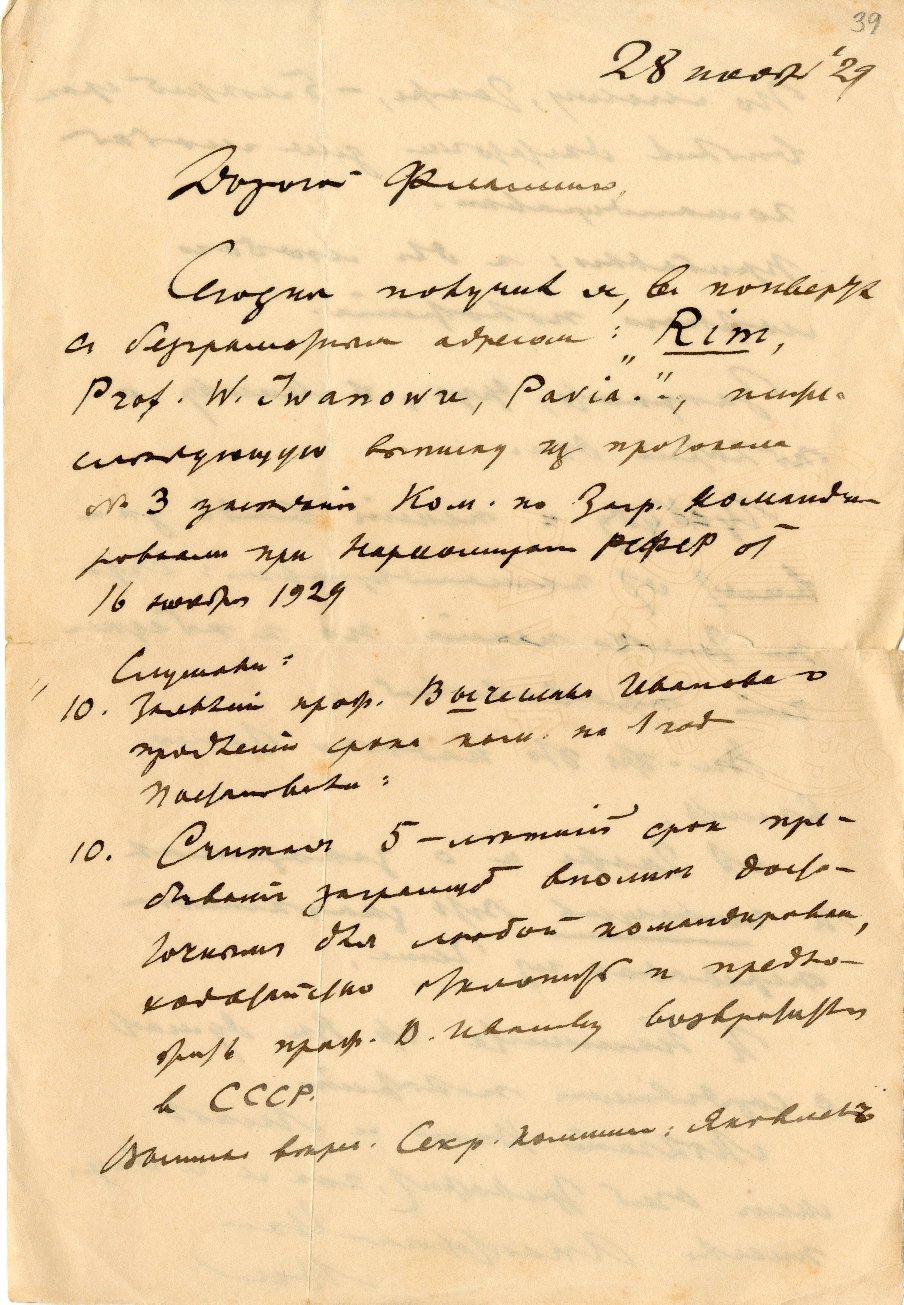 39
28 ноября '29
Дорогой Фламинго,
Сегодня получил я, въ конвертѣ
съ безграмотнымъ адресомъ: "Rim,
Prof. W. Iwanowu, Pavia".,
слѣдующую выписку изъ протокола
№ 3 засѣданій Ком. по Загр. Командি-
ровкамъ при Наркомпросѣ РСФСР от
16 ноября 1929
" Слушали:
10. Заявленіе проф. Вычеслава Иванова о
продленіи срока ком. на 1 год
Постановили:
10. Считая 5-лѣтній срок пре-
быванія заграницей вполнѣ доста-
точнымъ для любой командировки,
ходатайство отклонить и предло-
жить проф. В. Иванову возвратиться
в СССР.
Выписка вѣрна. Секр. Комиссіи: Яковлевъ